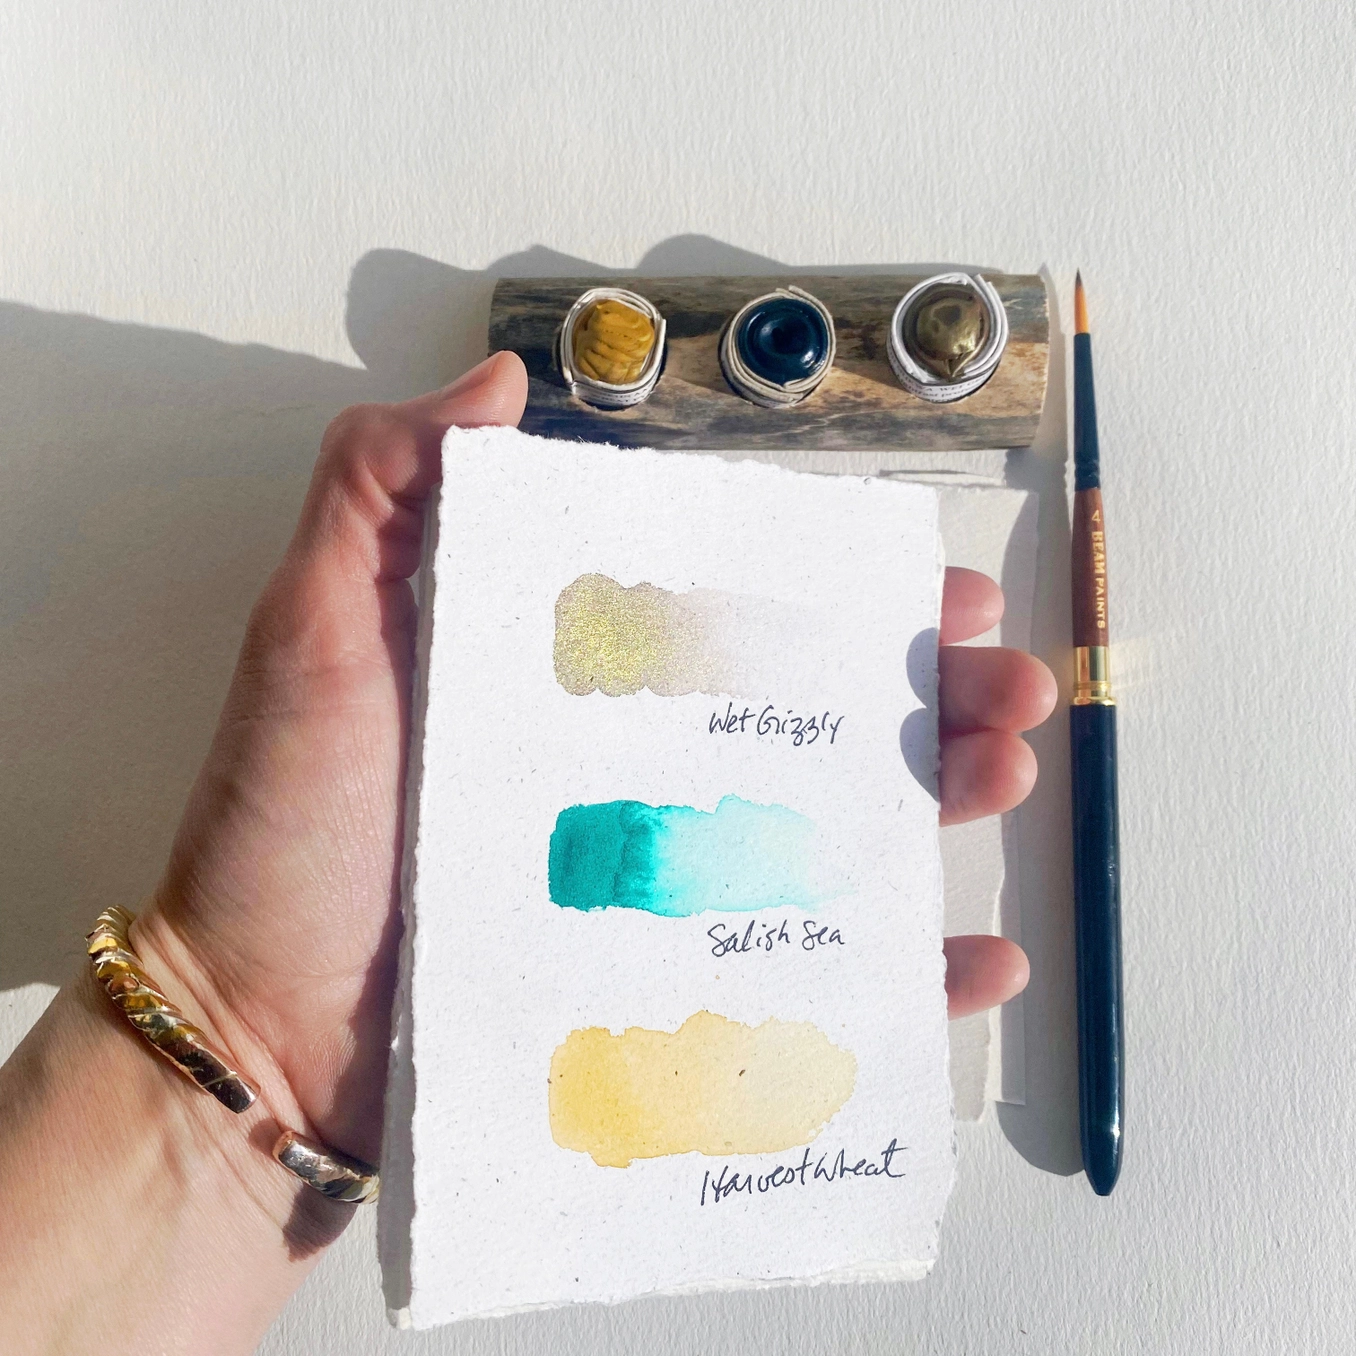 4 BEAM PAINTS
Wet Grizzly
Salish Sea
Harvest Wheat